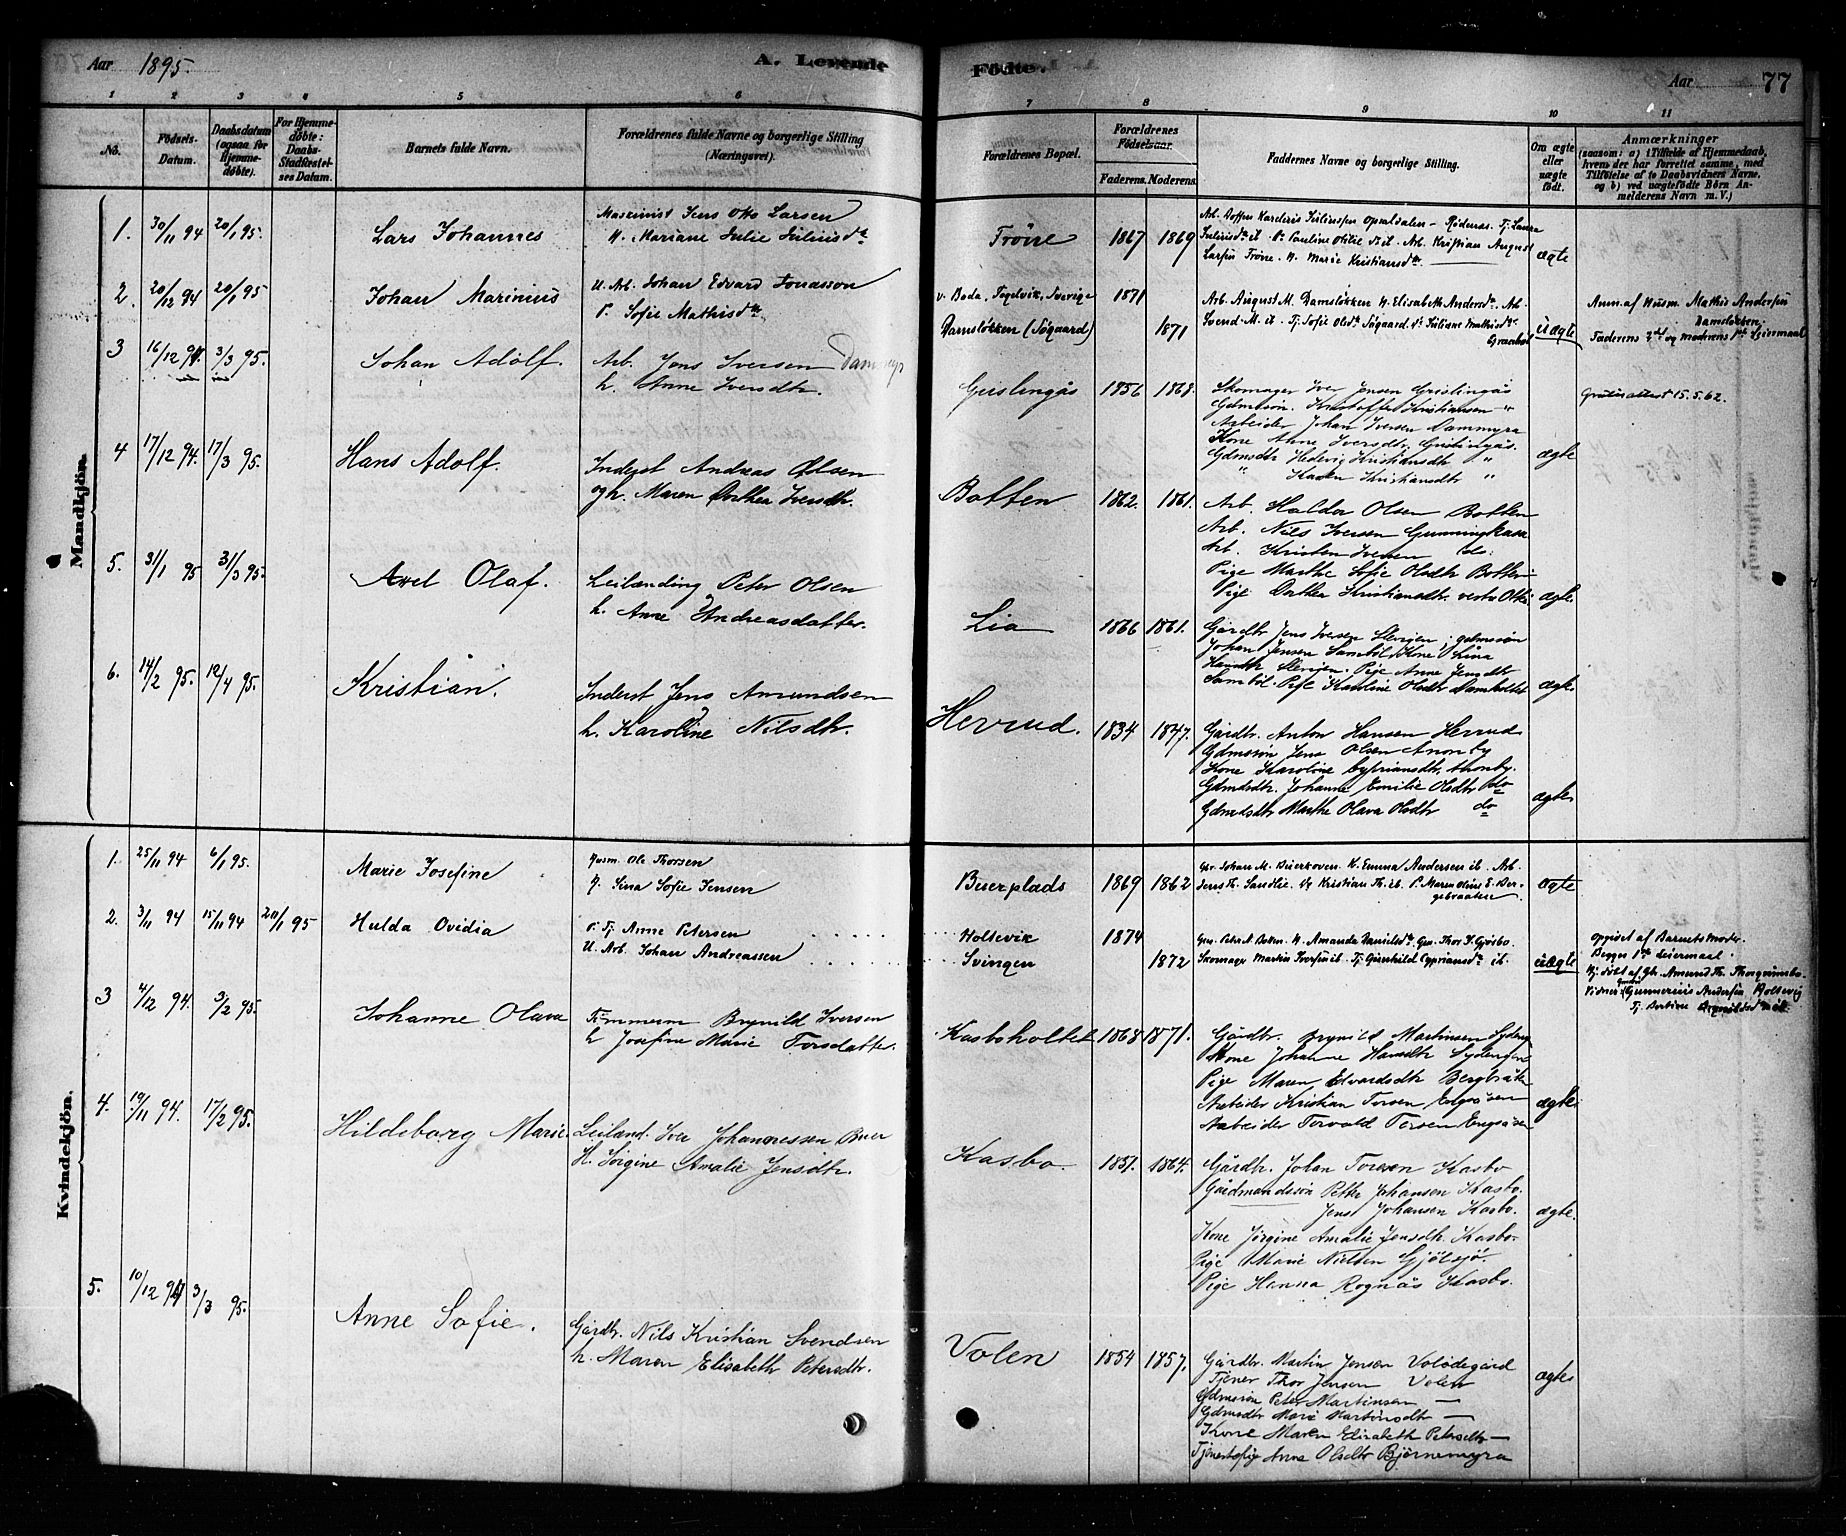 Aar 1895.
A. Levende
Födte.
Aar
77
1 2 3 4 5 6 7 8 9 10 11
No.
Födsels-
Datum.
Daabsdatum
(ogsaa for
Hjemme-
döbte).
For Hjemme-
döbte:
Daabs-
Stadfæstel-
ses Datum.
Barnets fulde Navn.
Forældrenes fulde Navne og borgerlige Stilling
(Næringsvei).
Forældrenes Bopæl.
Forældrenes
Födselsaar.
Faderens. Moderens.
Faddernes Navne og borgerlige Stilling.
Om ægte
eller
uægte
födt.
Anmærkninger
(saasom: a) i Tilfælde af Hjemmedaab,
hvem der har forrettet samme, med
Tilföielse af to Daabsvidners Navne,
og b) ved uægtefödte Börn An-
melderens Navn m. V.)
Mandkjön.
1. 30/11 94 20/1 95. Lars Johannes
Maskinist Jens Otto Larsen
H. Mariane Julie Juliusdr
Tröne 1867 1869
Larsen Tröne. H. Marie Kristiansdr
ægte
2. 20/12 94 20/1 95 Johan Marinius
U. Arb. Johan Edvard Jonasson
P. Sofie Mathisdr
v. Boda, Fogelvik, Sverige 1871
Damslökken (Sögaard) 1871
Arb. August M. Damslökken H. Elisabeth Andersdr. Arb.
Svend M. ib. Tj. Sofie Olsdr Sögaard. P. Juliane Mathisdr
uægte
Anm. af Husm. Mathis Andersen
Damslökken
Faderens 2det og moderens 1ste Leiermaal
3 16/12 94. 3/3 95. Johan Adolf.
Arb. Jens Iversen Dammyr
h. Anne Iversdtr.
Geislingås 1856 1868.
Skomager Iver Jensen Geislingås
Gdmssön. Kristoffer Kristiansen "
Arbeider Johan Iversen Dammyra
Kone Anne Iversdtr, Geislingås.
Gdmsdtr Hedevig Kristiansdtr "
" Karen Kristiansdtr "
ægte
Gratisattest 15.5.62.
4 17/12 94. 17/3 95. Hans Adolf.
Inderst Andreas Olsen
og h. Maren Dorthea Iversdtr.
Botten 1862. 1861.
Arb. Haldor Olsen Botten
Arb. Nils Iversen Gunningkasa
Arb. Kristen Iversen do:
Pige Marthe Sofie Olsdtr Botten
Pige Dorthea Kristiansdtr. vestre Otte
ægte
5. 31/1 95 31/3 95. Axel Olaf.
Leilænding Peter Olsen
h. Anne Andreasdatter.
Lia 1866 1861.
Gårdbr Jens Iversen Slevigen. gdmssön
Johan Jensen Samböl, Kone Lina
Hansdtr Slevigen. Pige Anne Jensdtr
Samböl. Pige Karoline Olsdtr Damholtet
ægte
6. 14/2 95. 12/4 95. Kristian.
Inderst Jens Amundsen
h. Karoline Nilsdtr.
Hervud. 1834 1847.
Gårdbr. Anton Hansen Herrud
Gdmssön Jens Olsen Anonby
Kone Karoline Cypriansdtr, Anonby.
Gdmdsdtr. Johanne Emilie Olsdtr do
Gdmdsdtr Marthe Olava Olsdtr do
ægte
Kvindekjön.
1. 25/11 94 6/1 95. Marie Josefine
Husm. Ole Thorsen
H. Lina Sofie Jensen
Buerplads 1869 1862
Gbr. Johan M. Buerkoven. H. Emma Andersen ib. Arb.
Jens Th. Sandlie. Ug Kristian Th. ib. P. Maren Oline E. Ber-
gebraatene
ægte
2. 3/11 94 15/11 94 20/1 95 Hulda Ovidia
P. Tj. Anne Petersen . . . . .
U. Arb. Johan Andreassen . . . . .
Holtevik 1874
Svingen 1872
Gbr. Peter A. Botten. H. Amanda Danielsdr. Gbr. Thor T. Gjösbo.
Skomager Martin Iversen ib. Tj. Gunhild Cypriansdr ib.
uægte
Opgivet af Barnets Moder.
Begges 1ste Leiermaal.
Hj. döbt af Gb. Amund Th. Thorgrimsbo.
Vidner: Gunnerius Andersen Holtevig
3 4/12 94. 3/2 95. Johanne Olava
Tømmerm Brynild Iversen
h Josefine Marie Torsdatter.
Kasboholtet 1868 1871.
Gårdbr. Brynild Martinsen Sydeng
Kone Johanne Hansdtr Sydengen
Pige Maren Edvardsdtr Bergbråte
Arbeider Kristian Torsen Engåsen
Arbeider Torvald Torsen Engåsen
ægte
4. 19/11 94. 17/2 95. Hildeborg Marie.
Leilænd. Iver Johannessen Buer
H. Jörgine Amalie Jensdtr.
Kasbo. 1851. 1864.
Gårdbr. Johan Toresen Kasbo
Gårdmandssön Petter Johansen Kasbo.
Jens Johansen Kasbo.
Kone Jörgine Amalie Jensdtr. Kasbo.
Pige Marie Nielsen Gjölsjö.
Pige Hanna Rognås Kasbo.
ægte.
5. 10/12 94 3/3 95. Anne Sofie.
Gårdbr. Nils Kristian Svendsen
h. Maren Elisabeth Petersdtr.
Volen 1854 1857.
Gårdbr. Martin Jensen Volödegård
Tjener Thor Jensen Volen
Gdmssön Peter Martinsen —
Gdmsdtr Marie Martinsdtr —
Kone Maren Elisabeth Petersdtr —
Tjenestepige Anne Olsdtr Björnemyra
ægte